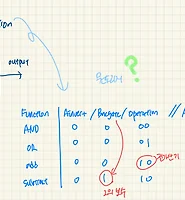 output
?
Function Ainvert / Bnegate / Operation //
AND 0 0 00
OR 0 0 01
add 0 0 10
subtract 0 1 10
2의 보수